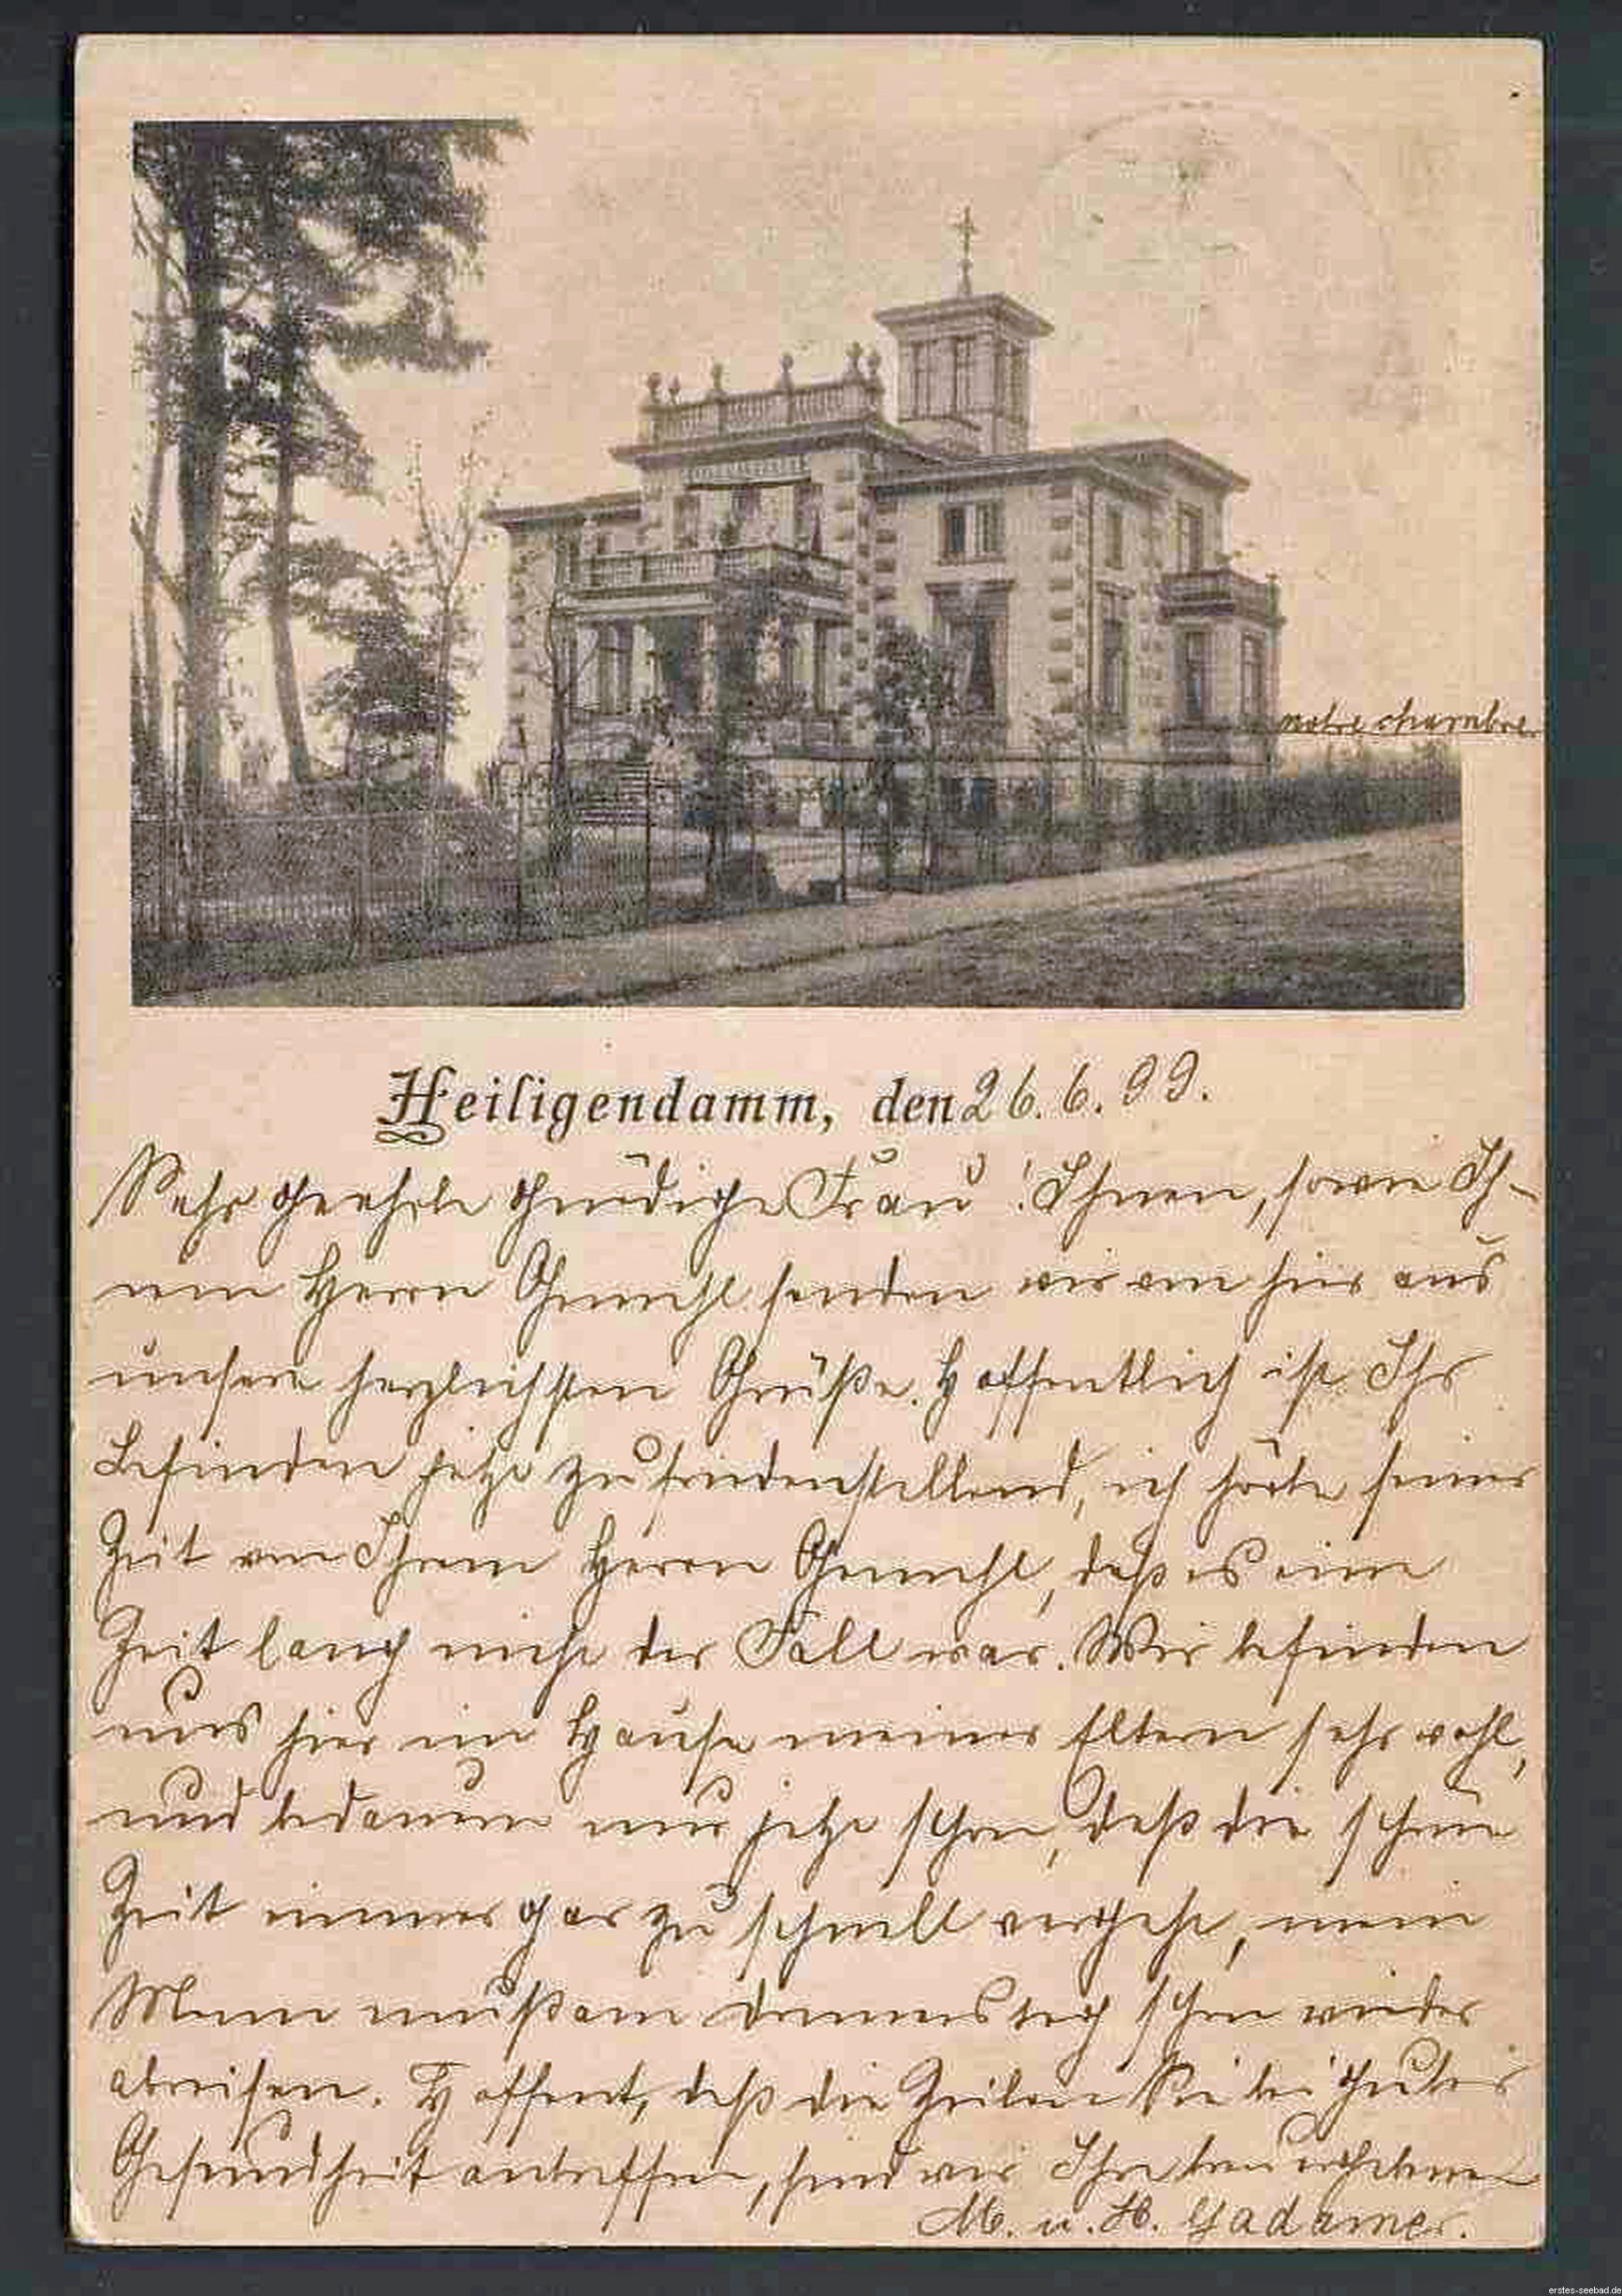 notre chambre.
Heiligendamm, den 26. 6. 99.
Sehr geehrte gnädige Frau! Ihnen, sowie Ih-
rem Herrn Gemahl senden wir von hier aus
unsere herzlichsten Grüße. Hoffentlich ist Ihr
Befinden jetzt zufriedenstellend, ich hörte seiner
Zeit von Ihrem Herrn Gemahl, daß es eine
Zeit lang nicht der Fall war. Wir befinden
uns hier im Hause meiner Eltern sehr wohl,
und bedauern nur jetzt schon, daß die schöne
Zeit immer gar zu schnell vergeht, mein
Mann muß am Donnerstag schon wieder
abreisen. Hoffent, daß die Zeilen Sie bei guter
Gesundheit antreffen, sind wir Ihre treu ergebenen
M. u. H. Gadamer.
erstes-seebad.de